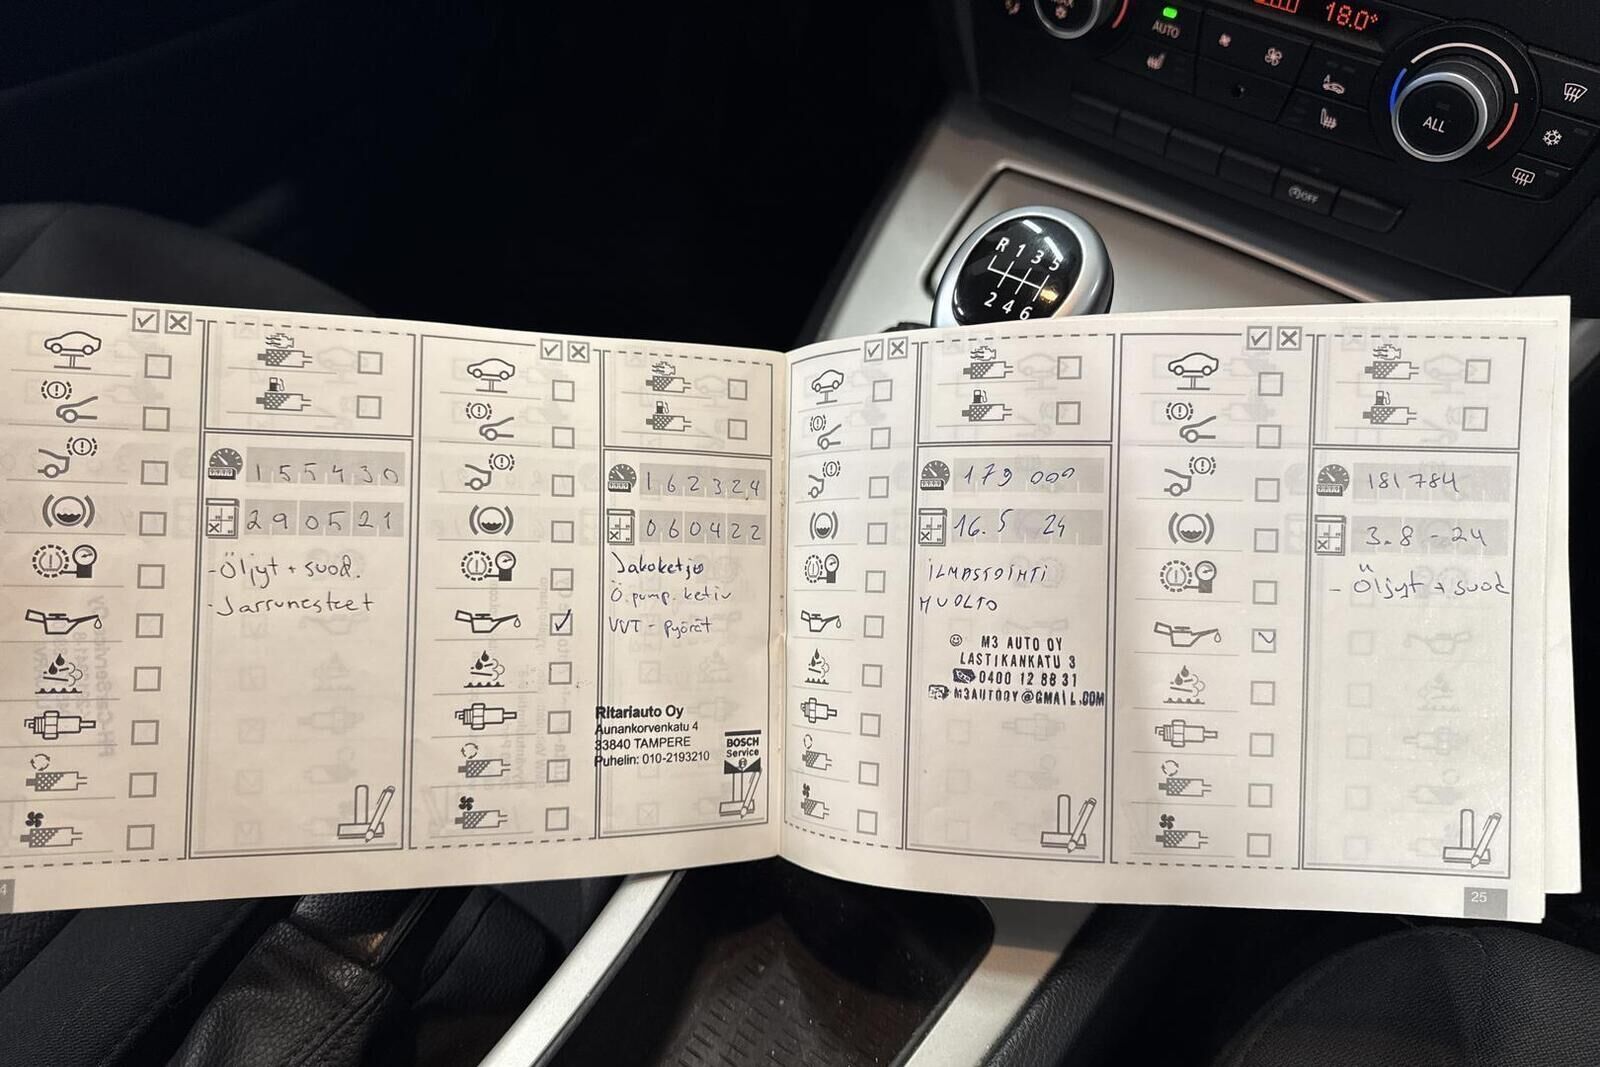 AUTO
18.0°
ALL
OFF
R 1 3 5
2 4 6
155430
290521
- Öljyt + suod.
- Jarrunesteet
162324
060422
Jakoketju
Ö.pump. ketju
VVT - pyörät
Ritariauto Oy
Aunankorvenkatu 4
33840 TAMPERE
Puhelin: 010-2193210
BOSCH
Service
179 000
16.5 24
iLMASTOiNTi
HUOLTO
M3 AUTO OY
LASTIKANKATU 3
0400 12 88 31
M3AUTOOY@GMAIL.COM
181 784
3.8 - 24
- Öljyt + suod
4
25